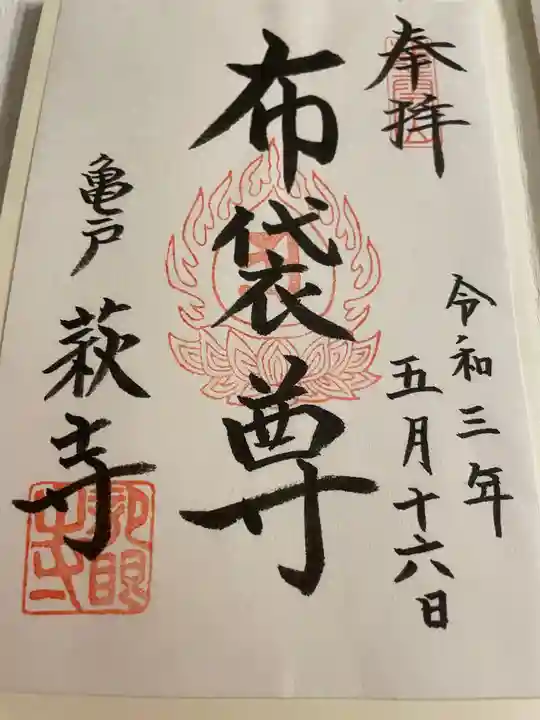 奉拝
令和三年
五月十六日
布袋尊
亀戸 萩寺